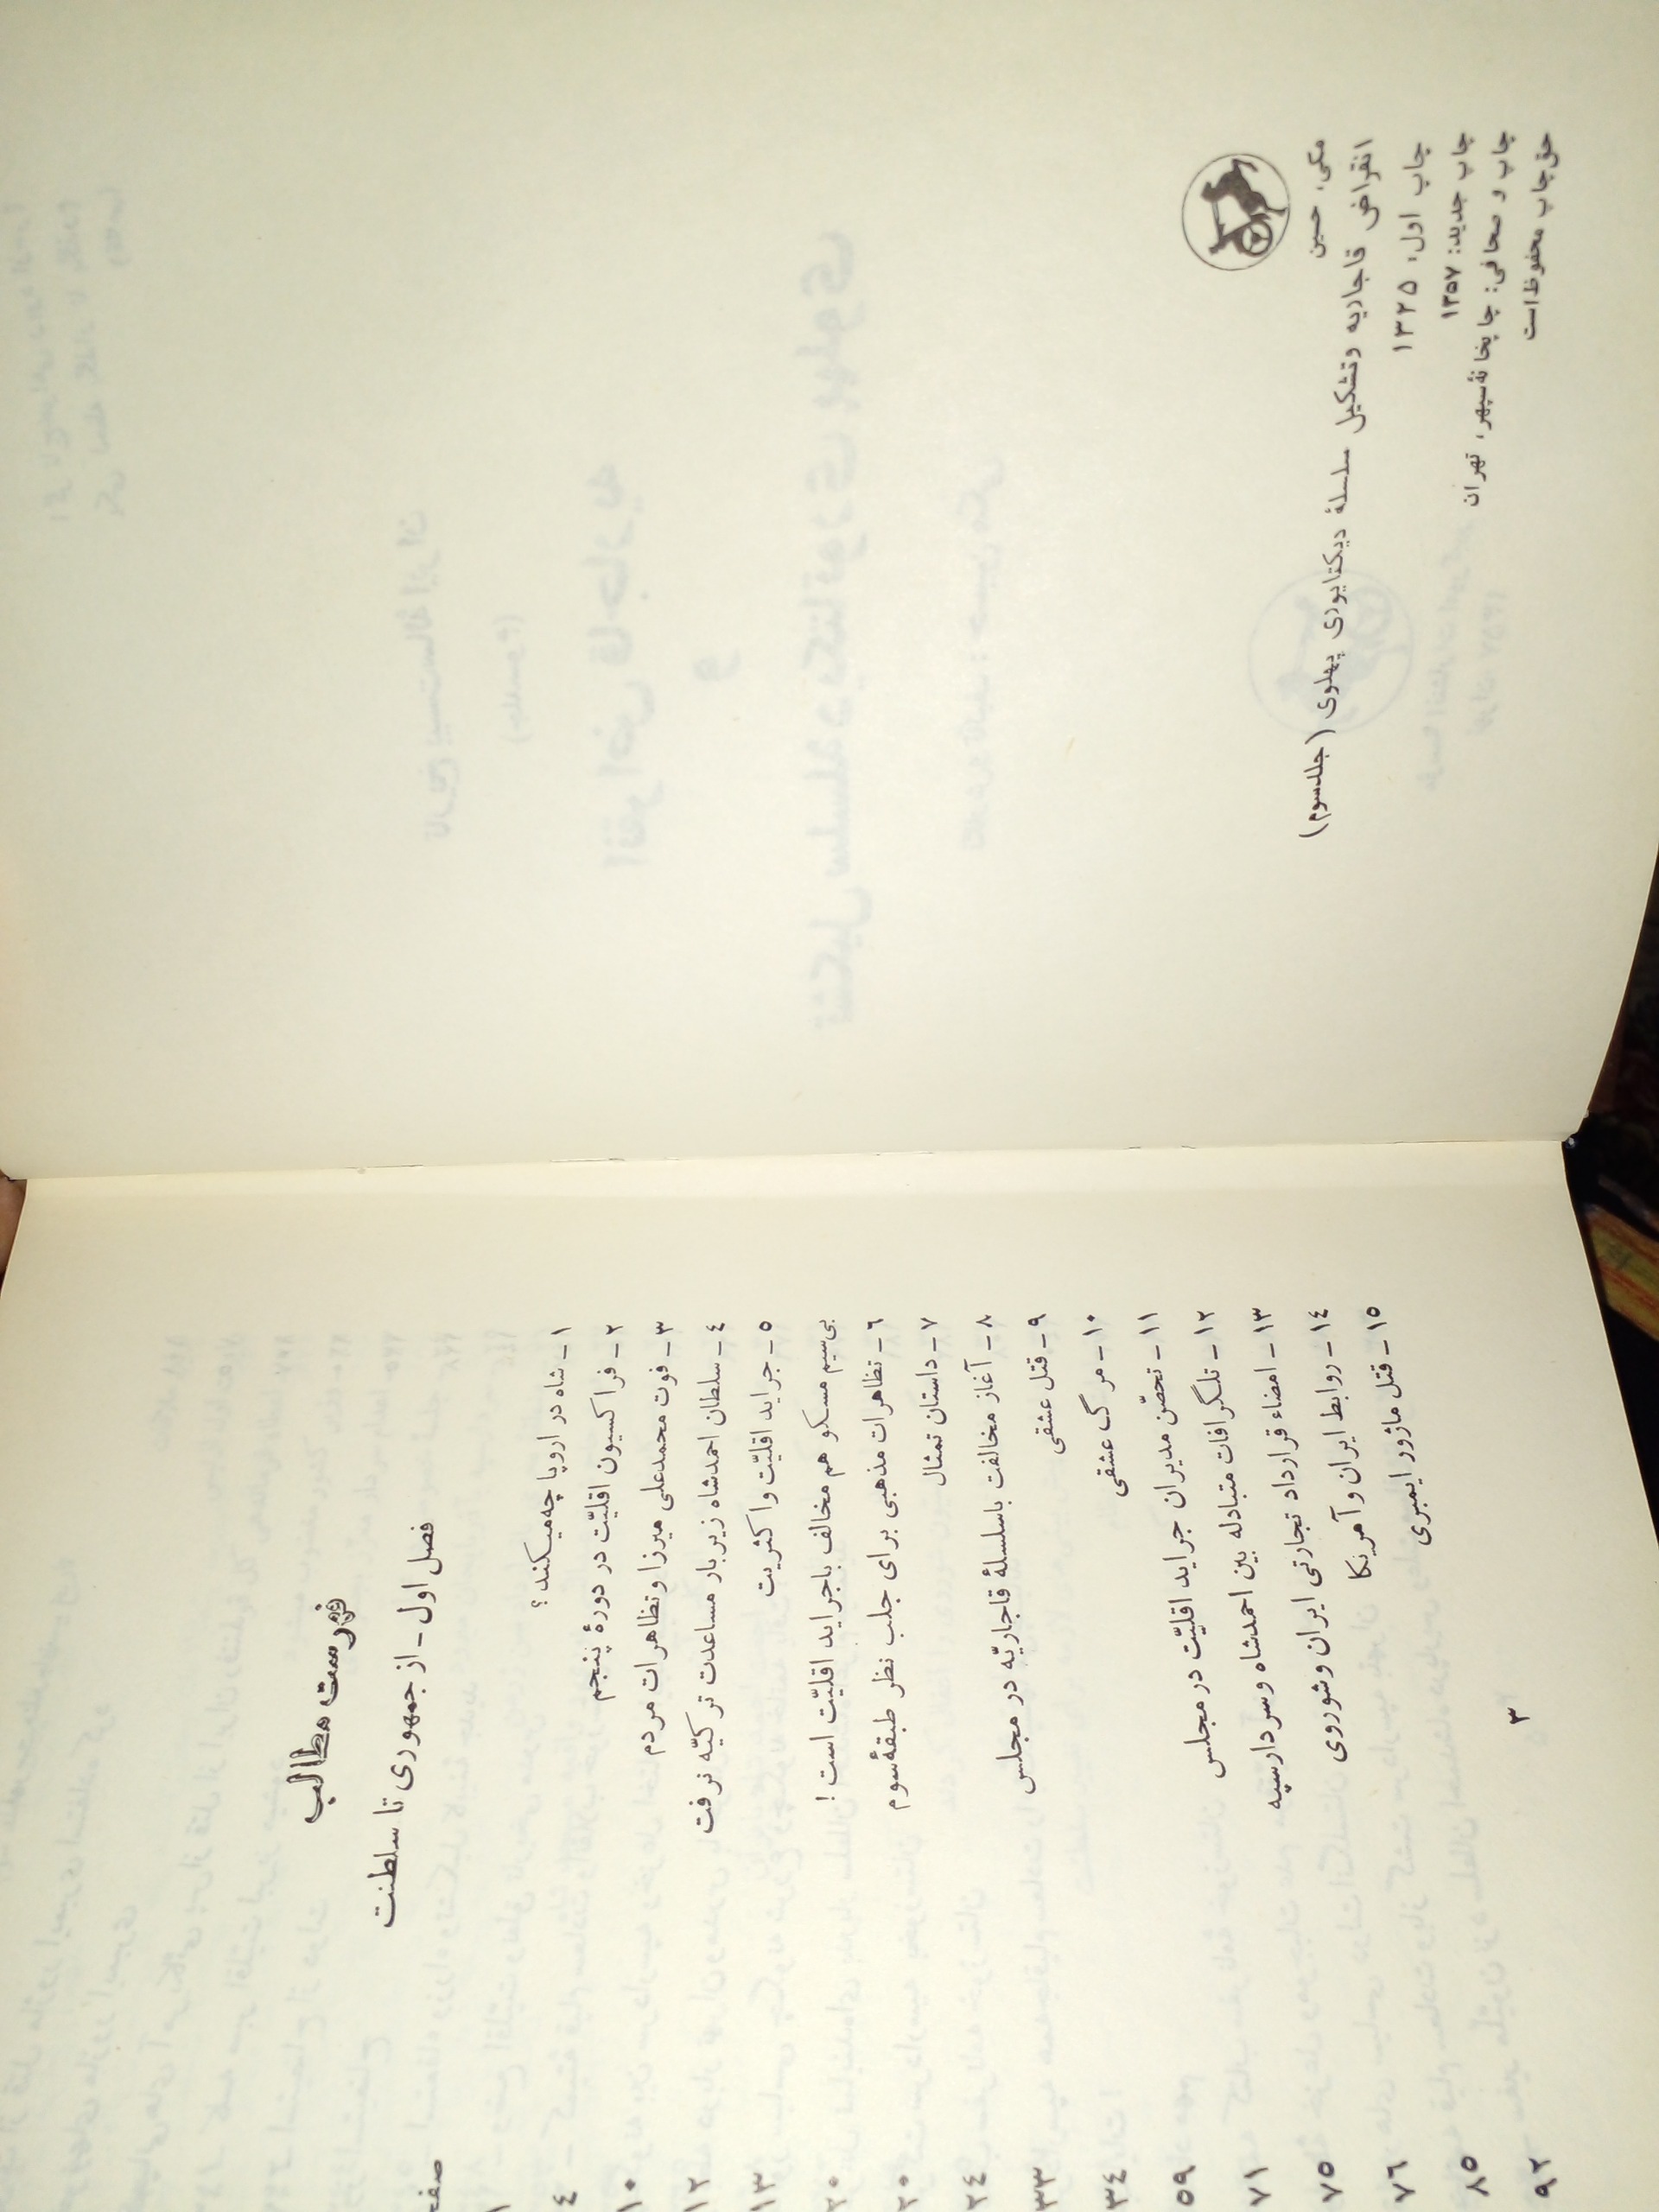 مکی، حسین
انقراض قاجاریه و تشکیل سلسلهٔ دیکتاتوری پهلوی (جلد سوم)
چاپ اول: ۱۳۲۵
چاپ جدید: ۱۳۵۷
چاپ و صحافی: چاپخانهٔ سپهر، تهران
حق چاپ محفوظ است
فهرست مطالب
فصل اول ـ از جمهوری تا سلطنت
صفحه
۱ ـ شاه در اروپا چه میکند؟ ۱
۲ ـ فراکسیون اقلیّت در دورهٔ پنجم ٤
۳ ـ فوت محمدعلی میرزا و تظاهرات مردم ۱۰
٤ ـ سلطان احمدشاه زیر بار مساعدت ترکیّه نرفت ۱۲
٥ ـ جراید اقلیّت و اکثریت ۱۳
بی‌سیم مسکو هم مخالف با جراید اقلیّت است! ۲۰
٦ ـ تظاهرات مذهبی برای جلب نظر طبقهٔ سوم ۲۰
۷ ـ داستان تمثال
۸ ـ آغاز مخالفت با سلسلهٔ قاجاریّه در مجلس ۲٤
۹ ـ قتل عشقی ۳۳
۱۰ ـ مرگ عشقی ۳٤
۱۱ ـ تحصّن مدیران جراید اقلیّت در مجلس ٥۹
۱۲ ـ تلگرافات متبادله بین احمدشاه و سردارسپه ۷۱
۱۳ ـ امضاء قرارداد تجارتی ایران و شوروی ۷٥
۱٤ ـ روابط ایران و آمریکا ۷٦
۱٥ ـ قتل ماژور ایمبری ۸٥
۹۲
۳